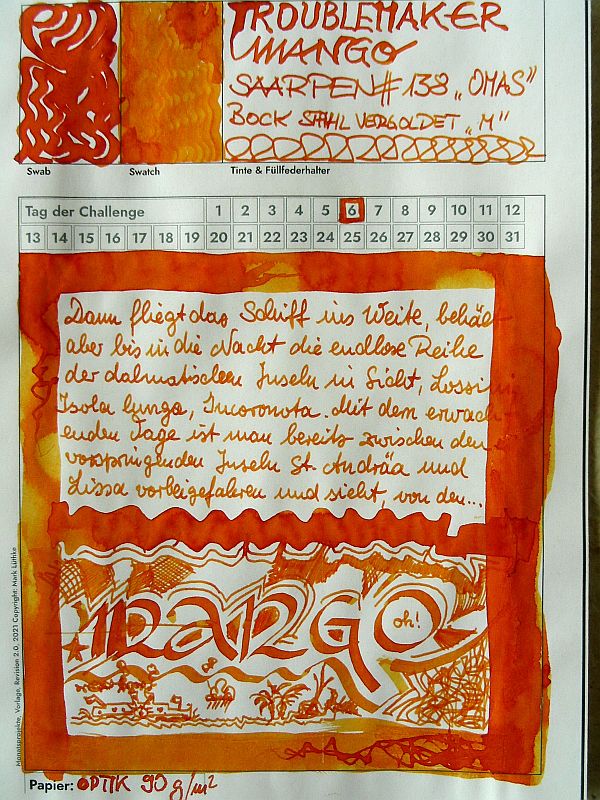 TROUBLEMAKER
MANGO
SAARPEN# 138 „OMAS"
BOCK STAHL VERGOLDET „M"
Swab
Swatch
Tinte & Füllfederhalter
Tag der Challenge 1 2 3 4 5 6 7 8 9 10 11 12
13 14 15 16 17 18 19 20 21 22 23 24 25 26 27 28 29 30 31
Dann fliegt das Schiff ins Weite, behält
aber bis in die Nacht die endlose Reihe
der dalmatischen Inseln in Sicht, Lossini
Isola lunga, Incoronota. Mit dem erwach-
enden Tage ist man bereits zwischen den
vorspringenden Inseln St. Andräa und
Lissa vorbeigefahren und sieht, von den...
MANGO
oh!
Monatsprojekte, Vorlage, Revision 2.0, 2021 Copyright: Mark Lüthke
Papier: OPTIK 90 g/m²